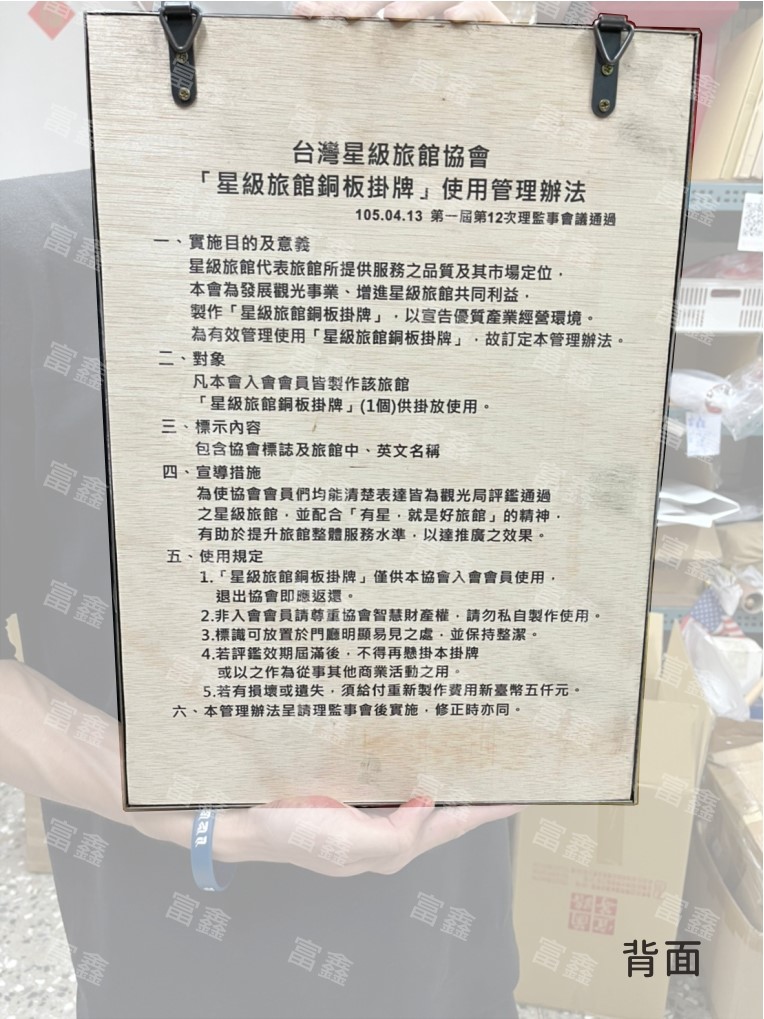 台灣星級旅館協會
「星級旅館銅板掛牌」使用管理辦法
105.04.13 第一屆第12次理監事會議通過
一、實施目的及意義
星級旅館代表旅館所提供服務之品質及其市場定位，
本會為發展觀光事業、增進星級旅館共同利益，
製作「星級旅館銅板掛牌」，以宣告優質產業經營環境。
為有效管理使用「星級旅館銅板掛牌」，故訂定本管理辦法。
二、對象
凡本會入會會員皆製作該旅館
「星級旅館銅板掛牌」(1個)供掛放使用。
三、標示內容
包含協會標誌及旅館中、英文名稱
四、宣導措施
為使協會會員們均能清楚表達皆為觀光局評鑑通過
之星級旅館，並配合「有星，就是好旅館」的精神，
有助於提升旅館整體服務水準，以達推廣之效果。
五、使用規定
1.「星級旅館銅板掛牌」僅供本協會入會會員使用，
退出協會即應返還。
2.非入會會員請尊重協會智慧財產權，請勿私自製作使用。
3.標識可放置於門廳明顯易見之處，並保持整潔。
4.若評鑑效期屆滿後，不得再懸掛本掛牌
或以之作為從事其他商業活動之用。
5.若有損壞或遺失，須給付重新製作費用新臺幣五仟元。
六、本管理辦法呈請理監事會後實施，修正時亦同。
背面
富鑫